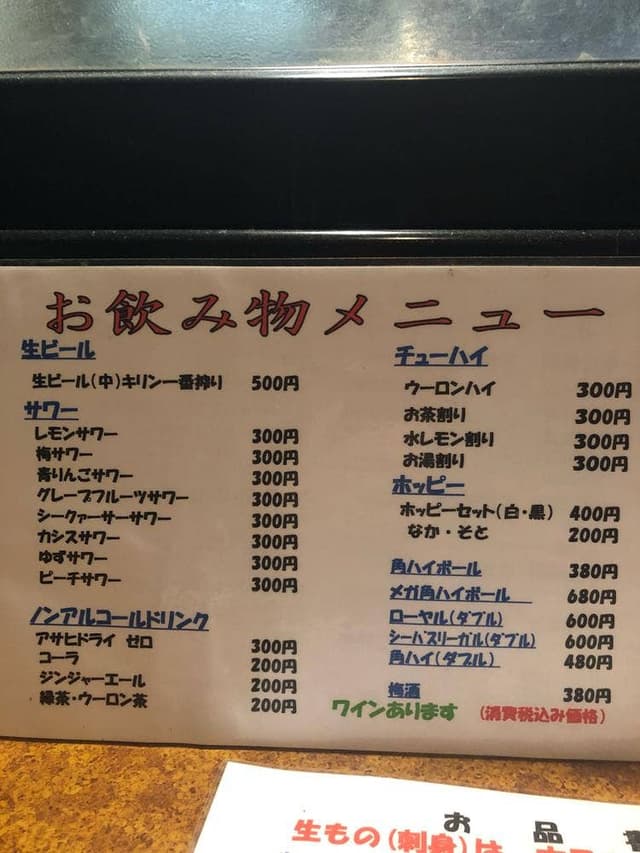 お飲み物メニュー
生ビール
生ビール(中)キリン一番搾り 500円
サワー
レモンサワー 300円
梅サワー 300円
青りんごサワー 300円
グレープフルーツサワー 300円
シークァーサーサワー 300円
カシスサワー 300円
ゆずサワー 300円
ピーチサワー 300円
ノンアルコールドリンク
アサヒドライ ゼロ 300円
コーラ 200円
ジンジャーエール 200円
緑茶・ウーロン茶 200円
チューハイ
ウーロンハイ 300円
お茶割り 300円
水レモン割り 300円
お湯割り 300円
ホッピー
ホッピーセット(白・黒) 400円
なか・そと 200円
角ハイボール 380円
メガ角ハイボール 680円
ローヤル(ダブル) 600円
シーバスリーガル(ダブル) 600円
角ハイ(ダブル) 480円
梅酒 380円
ワインあります (消費税込み価格)
お品
生もの(刺身)は